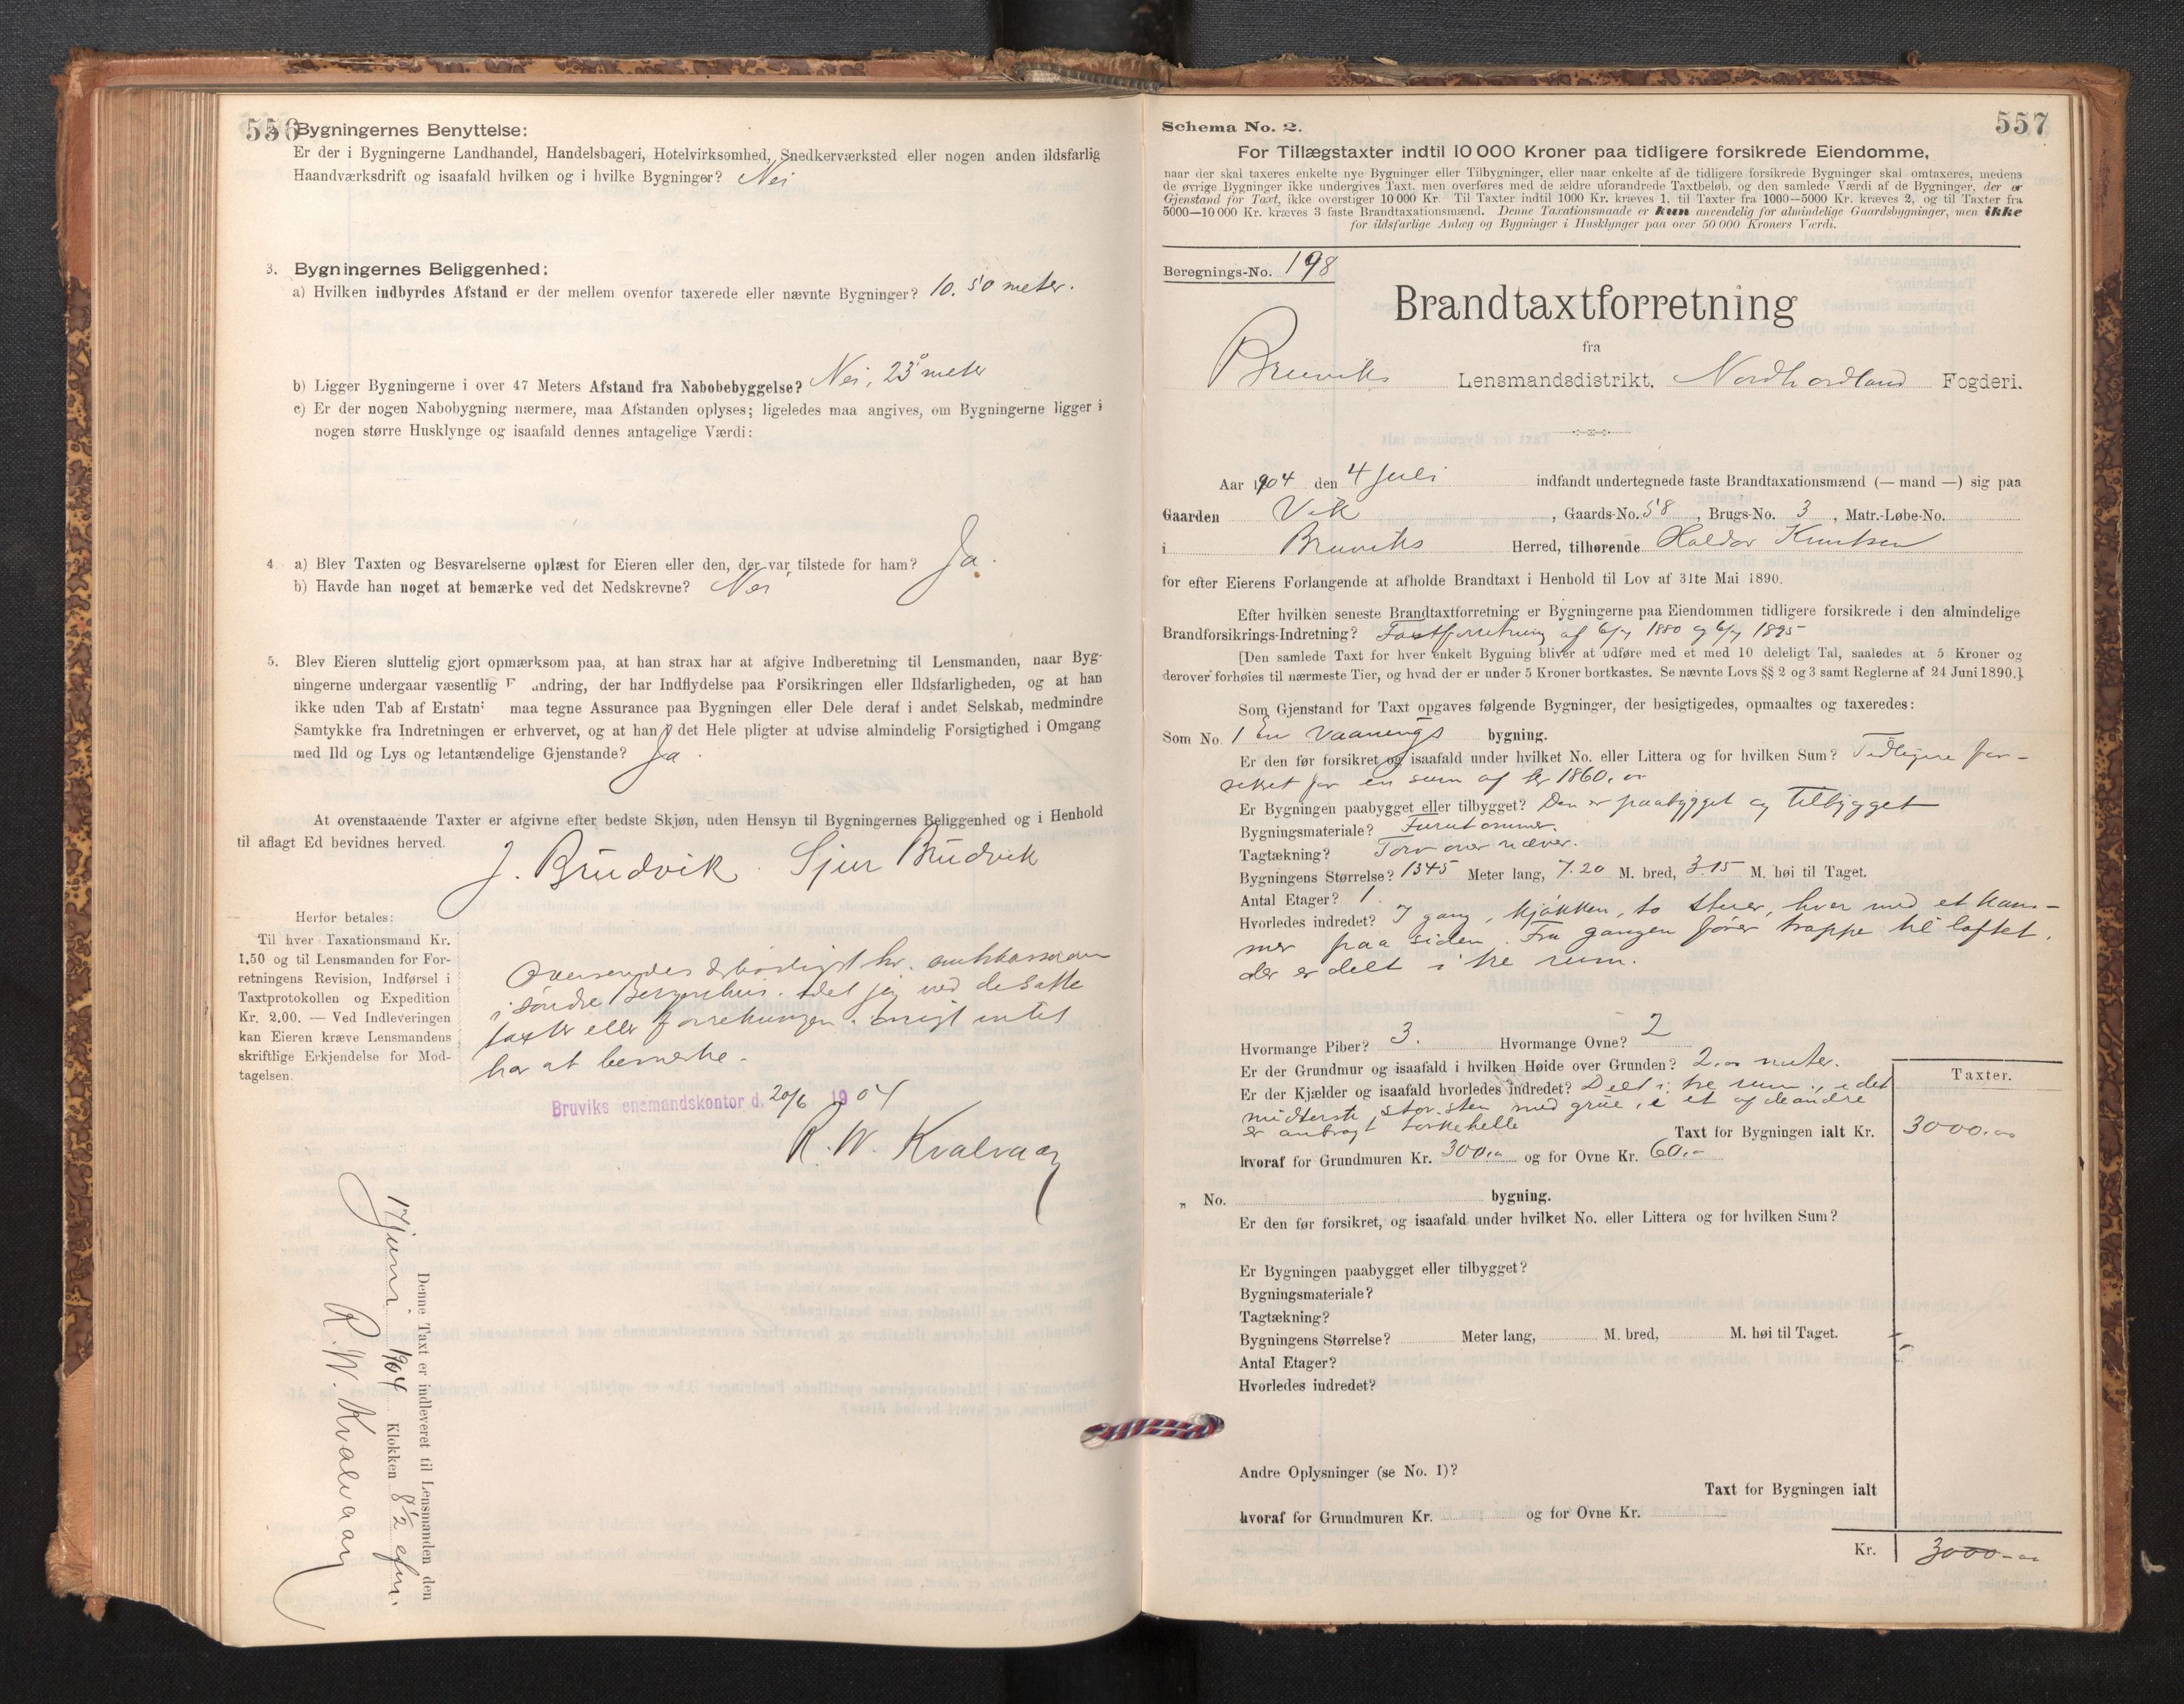 556
Bygningernes Benyttelse:
Er der i Bygningerne Landhandel, Handelsbageri, Hotelvirksomhed, Snedkerværksted eller nogen anden ildsfarlig
Haandværksdrift og isaafald hvilken og i hvilke Bygninger? Nei
3. Bygningernes Beliggenhed:
a) Hvilken indbyrdes Afstand er der mellem ovenfor taxerede eller nævnte Bygninger? 10.50 meter.
b) Ligger Bygningerne i over 47 Meters Afstand fra Nabobebyggelse? Nei, 23 meter
c) Er der nogen Nabobygning nærmere, maa Afstanden oplyses; ligeledes maa angives, om Bygningerne ligger i
nogen større Husklynge og isaafald dennes antagelige Værdi:
4. a) Blev Taxten og Besvarelserne oplæst for Eieren eller den, der var tilstede for ham? Ja.
b) Havde han noget at bemærke ved det Nedskrevne? Nei
5. Blev Eieren sluttelig gjort opmærksom paa, at han strax har at afgive Indberetning til Lensmanden, naar Byg-
ningerne undergaar væsentlig F andring, der har Indflydelse paa Forsikringen eller Ildsfarligheden, og at han
ikke uden Tab af Erstatn maa tegne Assurance paa Bygningen eller Dele deraf i andet Selskab, medmindre
Samtykke fra Indretningen er erhvervet, og at han i det Hele pligter at udvise almindelig Forsigtighed i Omgang
med Ild og Lys og letantændelige Gjenstande? Ja.
At ovenstaaende Taxter er afgivne efter bedste Skjøn, uden Hensyn til Bygningernes Beliggenhed og i Henhold
til aflagt Ed bevidnes herved.
J. Brudvik. Sjur Brudvik
Herfor betales:
Til hver Taxationsmand Kr.
1.50 og til Lensmanden for For-
retningens Revision, Indførsel i
Taxtprotokollen og Expedition
Kr. 2.00. — Ved Indleveringen
kan Eieren kræve Lensmandens
skriftlige Erkjendelse for Mod-
tagelsen.
Oversendes ærbødigst hr. amtskassereren
i søndre Bergenhus, idet jeg ved de satte
taxter eller forretningen øvrigt intet
har at bemerke.
Bruviks ensmandskontor d. 20/6 1904
R. W. Kvalvaag
Denne Taxt er indleveret til Lensmanden den
17 juni 1904 Klokken 8 1/2 efm.
R. W. Kvalvaag
557
Schema No. 2.
For Tillægstaxter indtil 10 000 Kroner paa tidligere forsikrede Eiendomme,
naar der skal taxeres enkelte nye Bygninger eller Tilbygninger, eller naar enkelte af de tidligere forsikrede Bygninger skal omtaxeres, medens
de øvrige Bygninger ikke undergives Taxt, men overføres med de ældre uforandrede Taxtbeløb, og den samlede Værdi af de Bygninger, der er
Gjenstand for Taxt, ikke overstiger 10 000 Kr. Til Taxter indtil 1000 Kr. kræves 1, til Taxter fra 1000—5000 Kr. kræves 2, og til Taxter fra
5000—10 000 Kr. kræves 3 faste Brandtaxationsmænd. Denne Taxationsmaade er kun anvendelig for almindelige Gaardsbygninger, men ikke
for ildsfarlige Anlæg og Bygninger i Husklynger paa over 50 000 Kroners Værdi.
Beregnings-No. 198
Brandtaxtforretning
fra
Bruviks Lensmandsdistrikt, Nordhordland Fogderi.
Aar 1904 den 4 Juli indfandt undertegnede faste Brandtaxationsmænd (— mand —) sig paa
Gaarden Vik, Gaards-No. 58, Brugs-No. 3, Matr.-Løbe-No.
i Bruviks Herred, tilhørende Haldor Knutsen
for efter Eierens Forlangende at afholde Brandtaxt i Henhold til Lov af 31te Mai 1890.
Efter hvilken seneste Brandtaxtforretning er Bygningerne paa Eiendommen tidligere forsikrede i den almindelige
Brandforsikrings-Indretning? Taxtforretning af 6/7 1880 og 6/7 1895
[Den samlede Taxt for hver enkelt Bygning bliver at udføre med et med 10 deleligt Tal, saaledes at 5 Kroner og
derover forhøies til nærmeste Tier, og hvad der er under 5 Kroner bortkastes. Se nævnte Lovs §§ 2 og 3 samt Reglerne af 24 Juni 1890.]
Som Gjenstand for Taxt opgaves følgende Bygninger, der besigtigedes, opmaaltes og taxeredes:
Som No. 1 En Vaanings bygning.
Er den før forsikret og isaafald under hvilket No. eller Littera og for hvilken Sum? Tidligere for-
sikret for en sum af kr 1860.00
Er Bygningen paabygget eller tilbygget? Den er paabygget og tilbygget
Bygningsmateriale? Furutømmer.
Tagtækning? Torv over næver.
Bygningens Størrelse? 1345 Meter lang, 7.20 M. bred, 3.15 M. høi til Taget.
Antal Etager? 1.
Hvorledes indredet? I gang, kjøkken, to stuer, hver med et kam-
mer paa siden. Fra gangen fører trappe til loftet,
der er delt i tre rum.
Hvormange Piber? 3. Hvormange Ovne? 2
Er der Grundmur og isaafald i hvilken Høide over Grunden? 2.00 meter.
Er der Kjælder og isaafald hvorledes indredet? Delt i tre rum, i det
midterste, skorsten med grue, i et af de andre
er anbragt tørkehelle
Taxter.
Taxt for Bygningen ialt Kr. 3000.00
hvoraf for Grundmuren Kr. 300.00 og for Ovne Kr. 60.-
„ No. bygning.
Er den før forsikret, og isaafald under hvilket No. eller Littera og for hvilken Sum?
Er Bygningen paabygget eller tilbygget?
Bygningsmateriale?
Tagtækning?
Bygningens Størrelse? Meter lang, M. bred, M. høi til Taget.
Antal Etager?
Hvorledes indredet?
Andre Oplysninger (se No. 1)?
Taxt for Bygningen ialt
hvoraf for Grundmuren Kr. og for Ovne Kr.
Kr. 3000.00